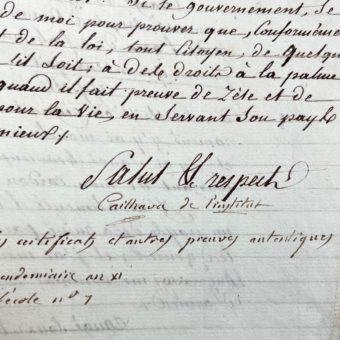 de le gouvernement, se
de moi pour prouver que, Conformém
t de la loi, tout Citoyen, de quelqu
il soit, a des droits à la palme
quand il fait preuve de Zèle et de
pour la Vie, en Servant Son pays
mieux.
Salut & respect
Cailhava de l'institut
certificats et autres preuves autentiques
endemiaire an XI
l'école nº 7